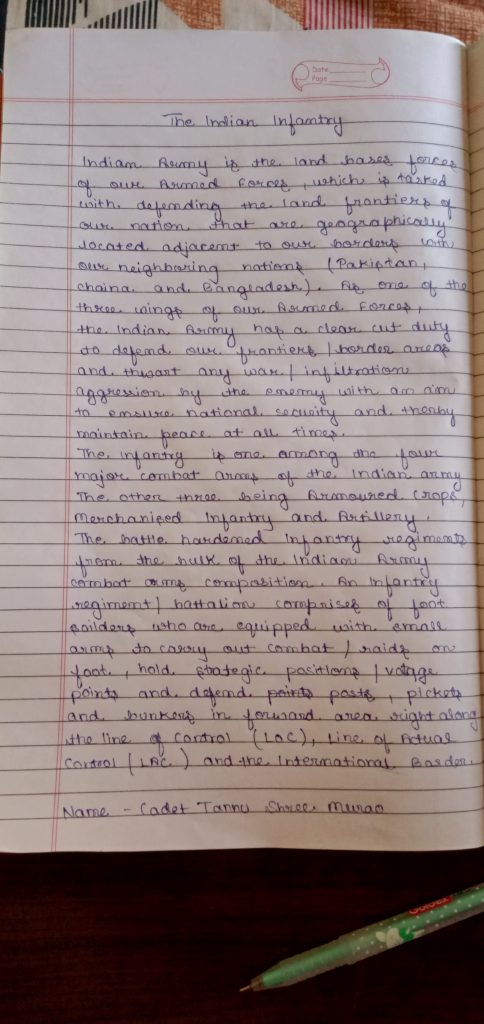 Date
Page
The Indian Infantry
Indian Army is the land bases forces
of our Armed Forces, which is tasked
with defending the land frontiers of
our nation that are geographically
located adjacent to our borders with
our neighboring nations (Pakistan,
chaina and Bangladesh). As one of the
three wings of our Armed Forces,
the Indian Army has a clear cut duty
to defend our frontiers / border areas
and thwart any war / infiltration
aggression by the enemy with an aim
to ensure national security and thereby
maintain peace at all times.
The infantry is one among the four
major combat arms of the Indian army
The other three being Armoured Crops,
Merchanised Infantry and Artillery.
The battle hardened Infantry regiments
from the bulk of the Indian Army
combat arms composition. An Infantry
regiment / battalion comprises of foot
soilders who are equipped with small
arms to carry out combat / raids on
foot, hold strategic positions / vatage
points and defend points posts, pickets
and bunkers in forward area right along
the line of Control (LOC), Line of Actual
Control (LAC) and the International Border.
Name - Cadet Tannu Shree Murao